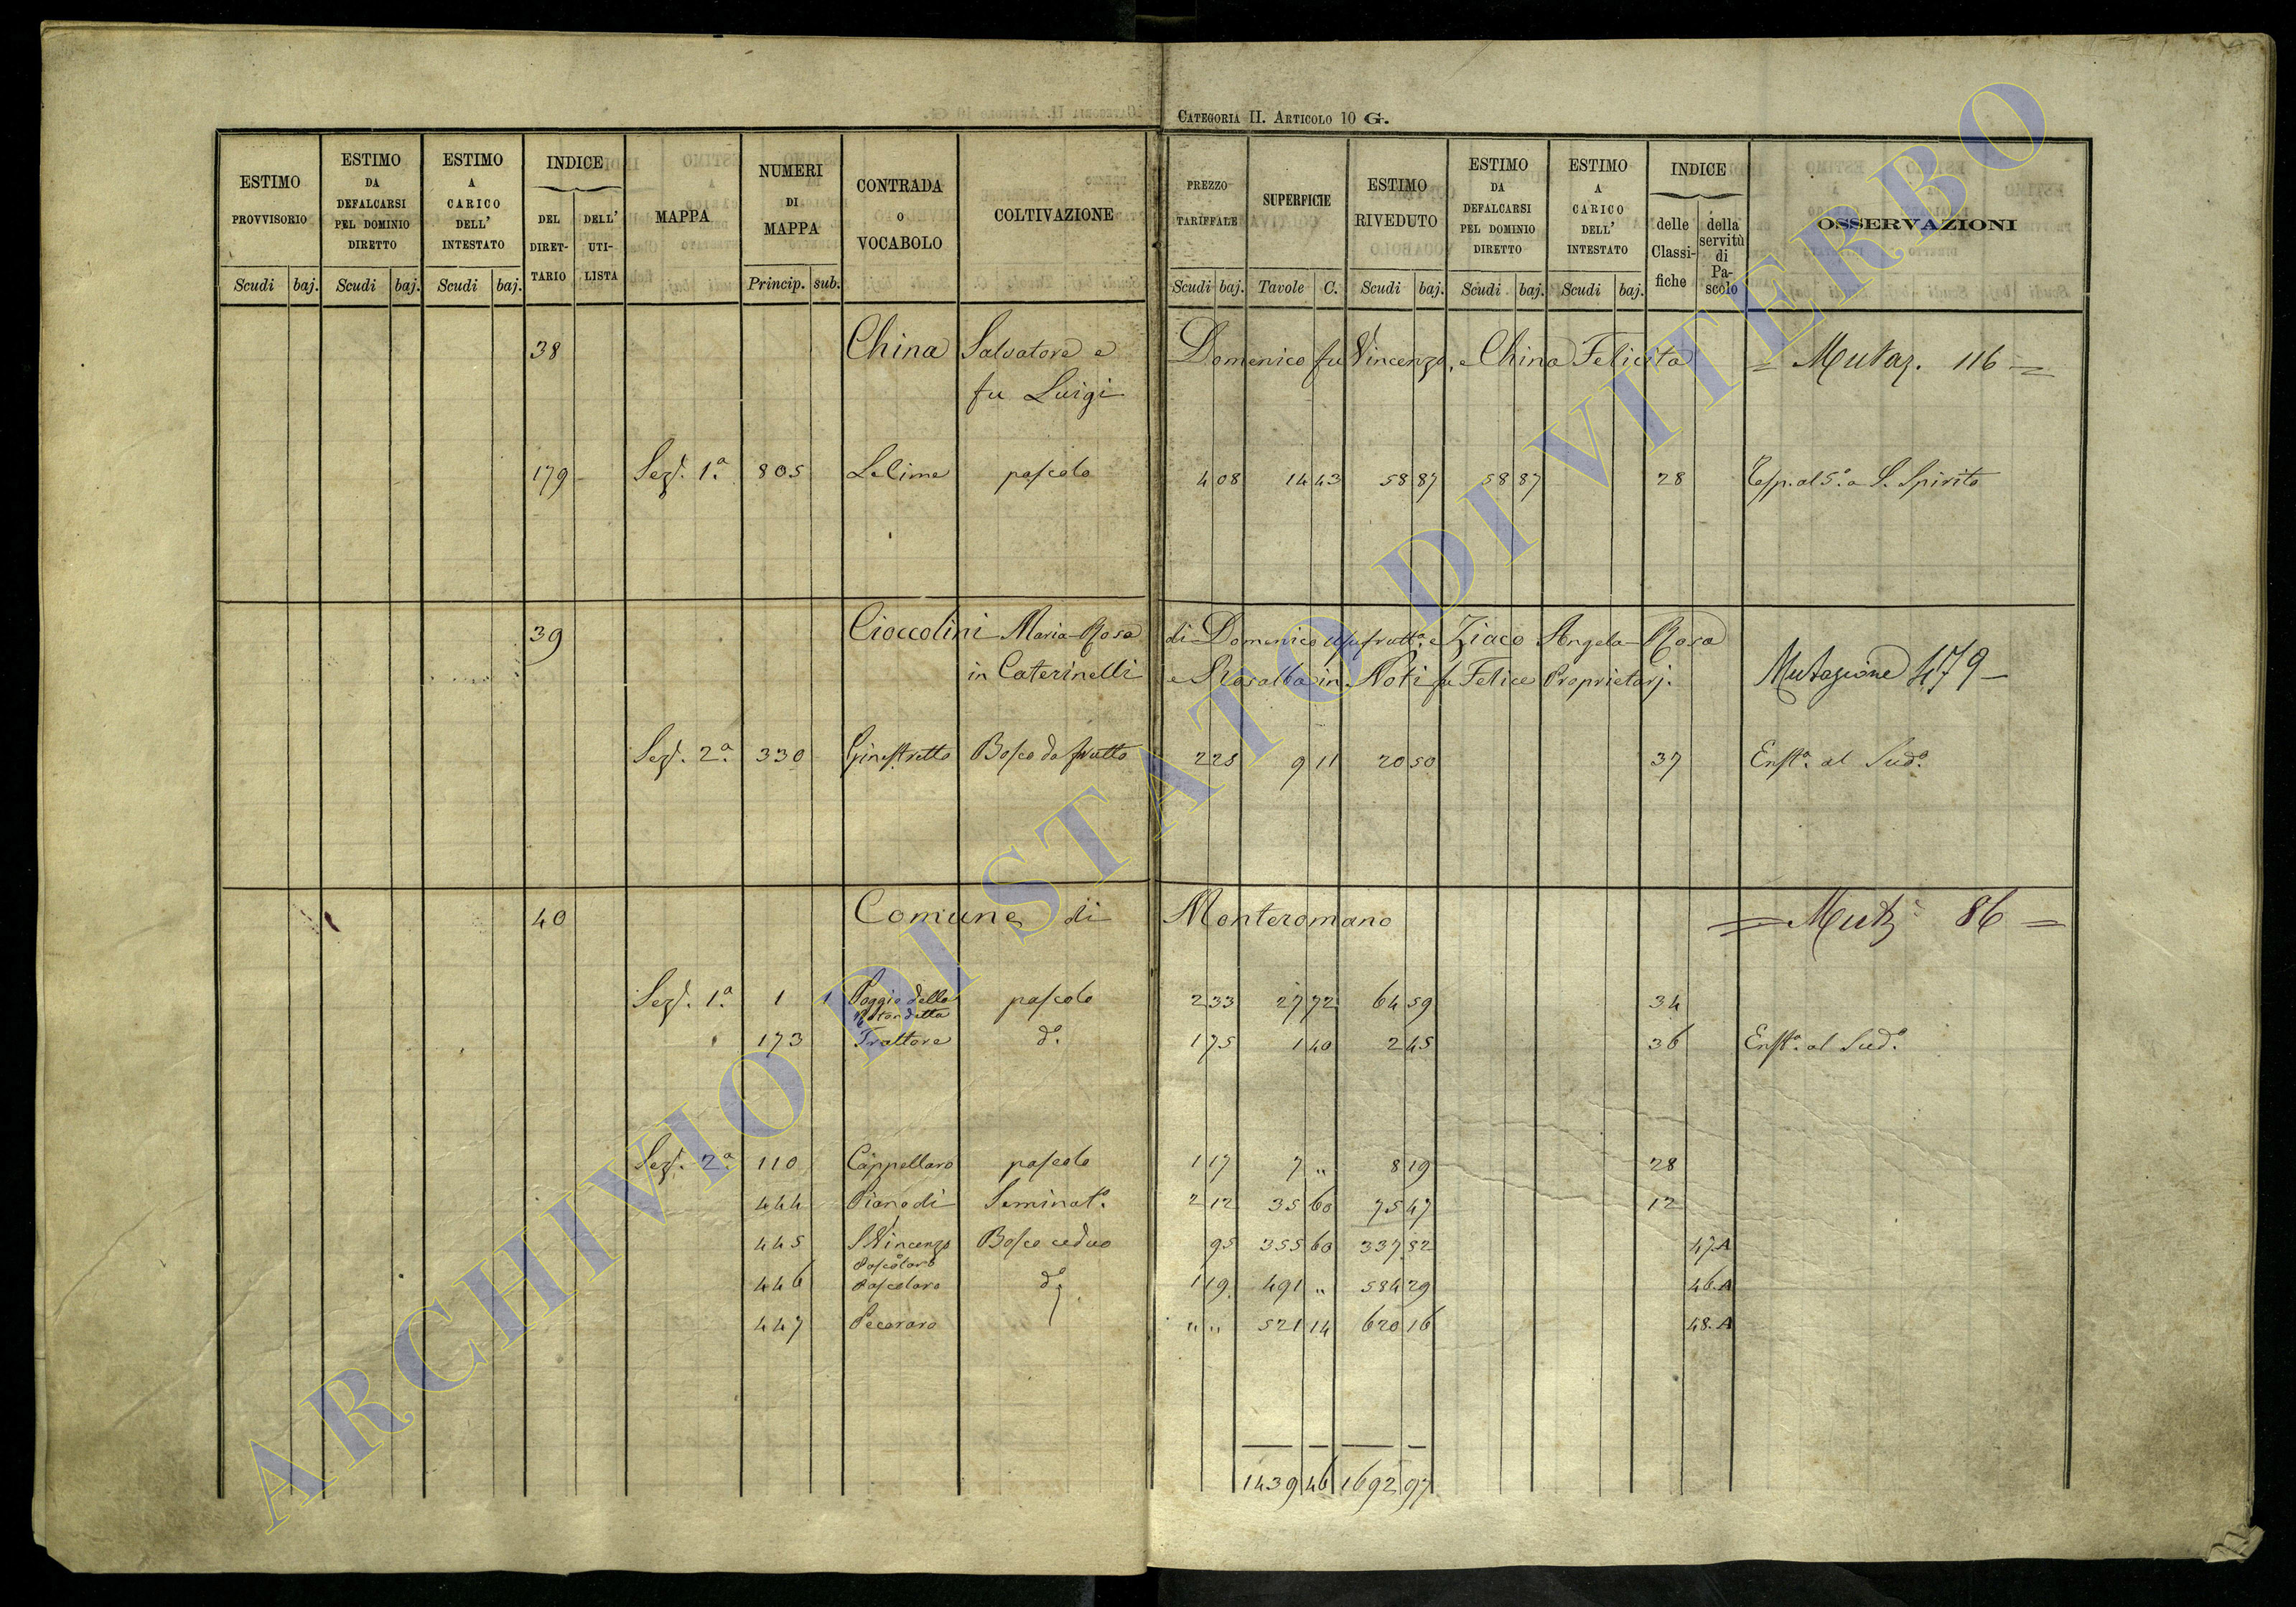 CATEGORIA II. ARTICOLO 10 G.
ESTIMO PROVVISORIO Scudi baj.
ESTIMO DA DEFALCARSI PEL DOMINIO DIRETTO Scudi baj.
ESTIMO A CARICO DELL' INTESTATO Scudi baj.
INDICE DEL DIRETTARIO DELL' UTILISTA
MAPPA
NUMERI DI MAPPA Princip. sub.
CONTRADA O VOCABOLO
COLTIVAZIONE
PREZZO TARIFFALE Scudi baj.
SUPERFICIE Tavole C.
ESTIMO RIVEDUTO Scudi baj.
ESTIMO DA DEFALCARSI PEL DOMINIO DIRETTO Scudi baj.
ESTIMO A CARICO DELL' INTESTATO Scudi baj.
INDICE delle Classifiche della servitù di Pascolo
OSSERVAZIONI
38 China Salvatore e Domenico fu Vincenzo, e China Felicita = Mutaz. 116 =
fu Luigi
179 Sez. 1ª 805 pascolo 4 08 14 43 58 87 58 87 28 Risp. al 5º a S. Spirito
39 Cioccolini Maria Rosa di Domenico Usufrutt.ª e Ziaco Angela Rosa
in Caterinelli e Rosalba in Noti fu Felice Proprietarj. Mutazione 479
Sez. 2ª 330 Ginestretto Bosco da frutto 2 28 9 11 20 50 37 Enft.ª al Sud.º
40 Comune di Monteromano = Mutz. 86 =
Sez. 1ª 1 1 Poggio della Rotondetta pascolo 2 33 27 72 64 59 34
173 Trattore d.º 1 75 1 40 2 45 36 Enft.ª al Sud.º
Sez. 2ª 110 Cappellaro pascolo 1 17 7 " 8 19 28
444 Piano di Seminat.º 2 12 35 60 75 47 12
445 S. Vincenzo Pascolaro Bosco ceduo 95 355 60 337 82 47.A
446 Pascolaro d.º 1 19 491 " 584 29 46.A
447 Pecoraro " " 521 14 620 16 48.A
1439 46 1692 97
ARCHIVIO DI STATO DI VITERBO